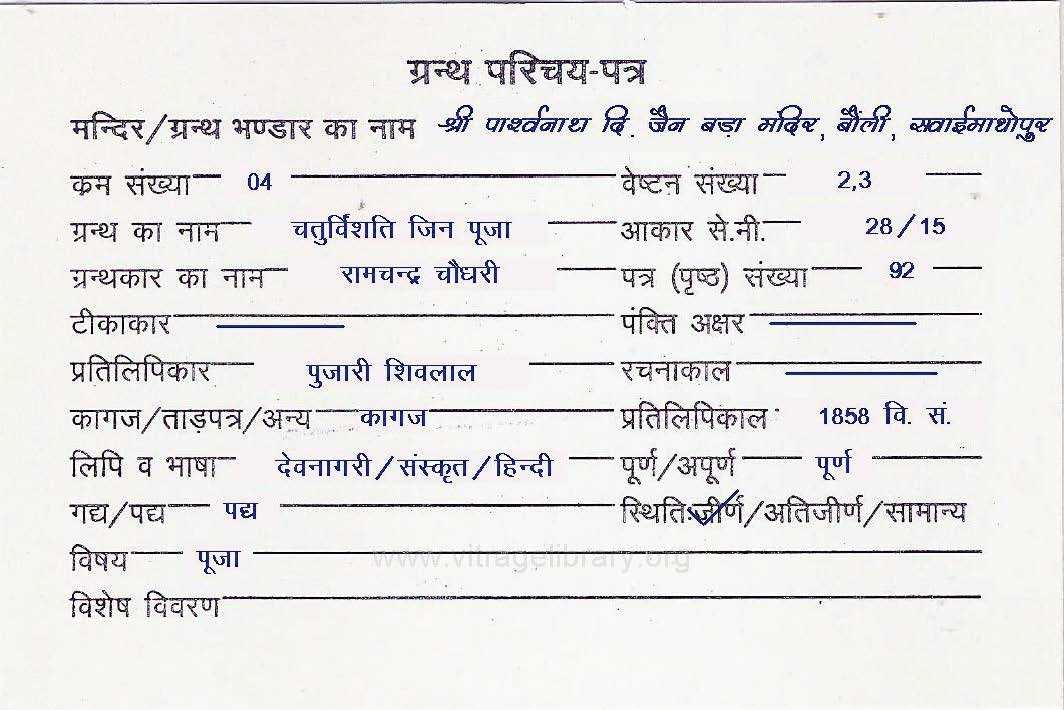 ग्रन्थ परिचय-पत्र
मन्दिर/ग्रन्थ भण्डार का नाम श्री पार्श्वनाथ दि. जैन बड़ा मंदिर, बौंली, सवाईमाधोपुर
क्रम संख्या 04 वेष्टन संख्या 2,3
ग्रन्थ का नाम चतुर्विंशति जिन पूजा आकार से.मी. 28/15
ग्रन्थकार का नाम रामचन्द्र चौधरी पत्र (पृष्ठ) संख्या 92
टीकाकार पंक्ति अक्षर
प्रतिलिपिकार पुजारी शिवलाल रचनाकाल
कागज/ताड़पत्र/अन्य कागज प्रतिलिपिकाल 1858 वि. सं.
लिपि व भाषा देवनागरी/संस्कृत/हिन्दी पूर्ण/अपूर्ण पूर्ण
गद्य/पद्य पद्य स्थिति:जीर्ण/अतिजीर्ण/सामान्य
विषय पूजा
www.vitragelibrary.org
विशेष विवरण